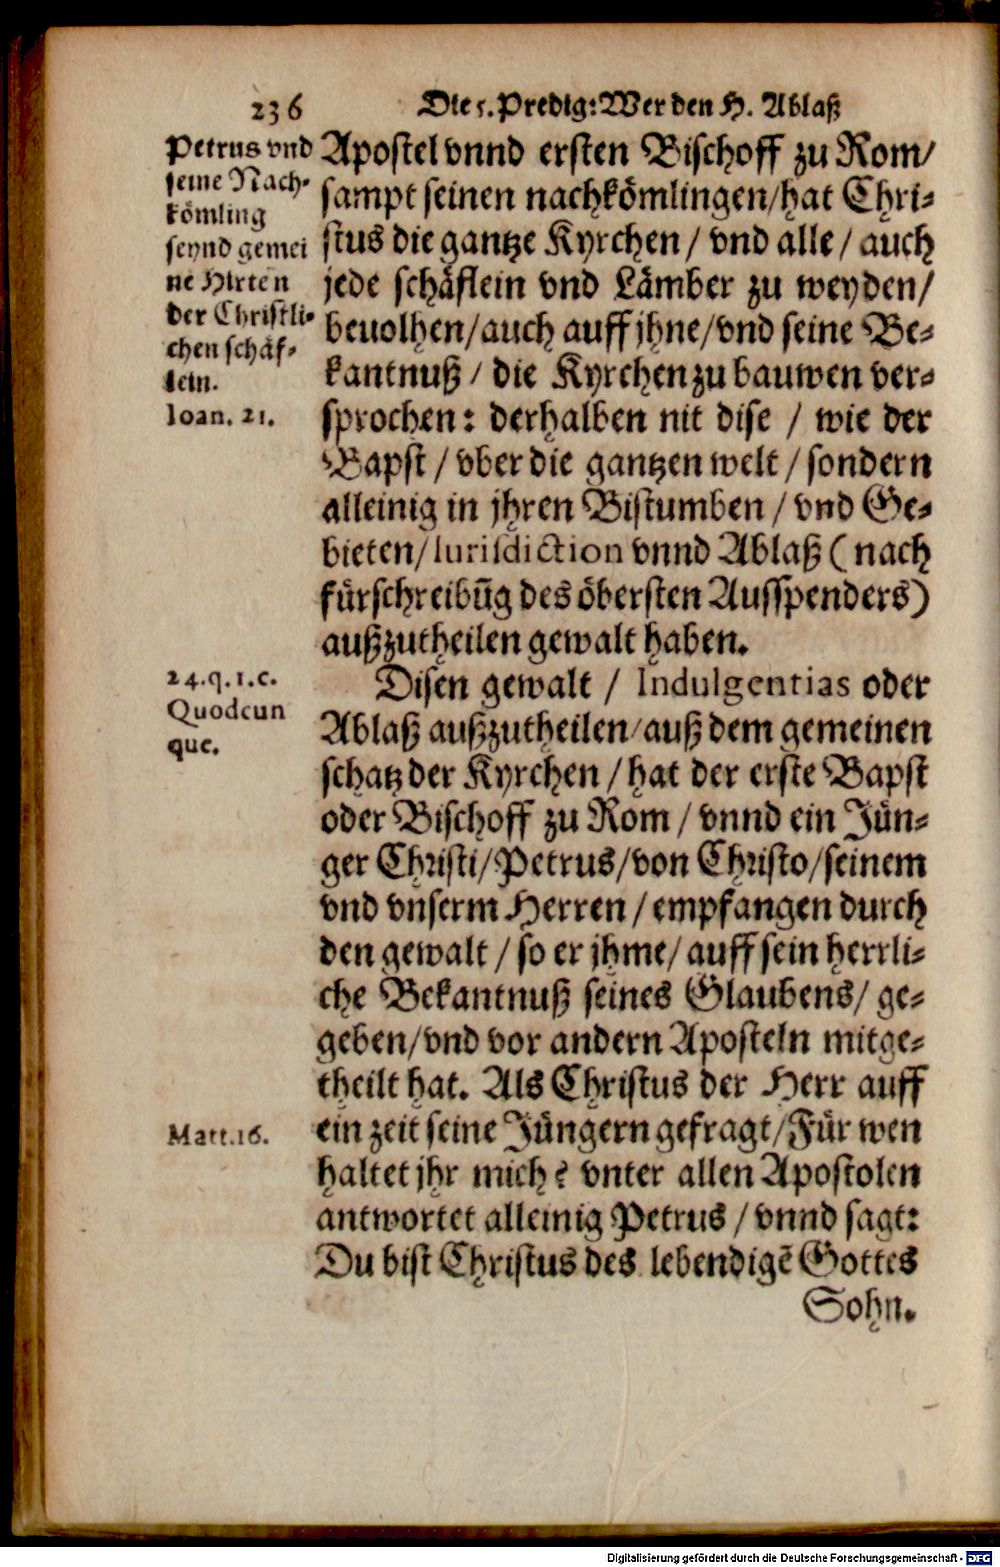 236 Die 5. Predig: Wer den H. Ablaß
Petrus vnd
seine Nach⸗
kömling
seynd gemei
ne Hirten
der Christli⸗
chen schäf⸗
lein.
Ioan. 21.
Apostel vnnd ersten Bischoff zu Rom/
sampt seinen nachkömlingen/hat Chri⸗
stus die gantze Kyrchen / vnd alle / auch
jede schäflein vnd Lämber zu weyden/
beuolhen/auch auff jhne/vnd seine Be⸗
kantnuß / die Kyrchen zu bauwen ver⸗
sprochen: derhalben nit dise / wie der
Bapst / vber die gantzen welt / sondern
alleinig in jhren Bistumben / vnd Ge⸗
bieten/Iurisdiction vnnd Ablaß (nach
fürschreibūg des öbersten Ausspenders)
außzutheilen gewalt haben.
24.q.1.c.
Quodcun
que.
Disen gewalt / Indulgentias oder
Ablaß außzutheilen/auß dem gemeinen
schatz der Kyrchen / hat der erste Bapst
oder Bischoff zu Rom / vnnd ein Jün⸗
ger Christi/Petrus/von Christo/seinem
vnd vnserm Herren / empfangen durch
den gewalt / so er jhme/ auff sein herrli⸗
che Bekantnuß seines Glaubens/ ge⸗
geben/vnd vor andern Aposteln mitge⸗
theilt hat. Als Christus der Herr auff
Matt.16.
ein zeit seine Jüngern gefragt/Für wen
haltet jhr mich? vnter allen Apostolen
antwortet alleinig Petrus / vnnd sagt:
Du bist Christus des lebendigē Gottes
Sohn.
Digitalisierung gefördert durch die Deutsche Forschungsgemeinschaft - DFG